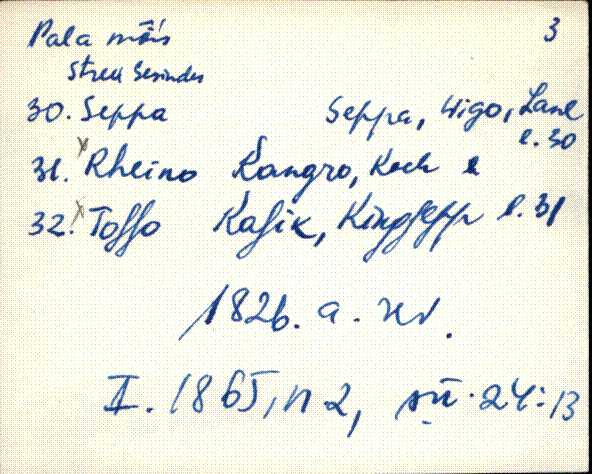 Pala mõis 3
Streu Gesindes
30. Seppa Seppa, Wigo, Lane
l. 30
31. Rheino Kangro, Koch l
32. Toffo Kasik, Kingsepp l. 31
1826. a. rev.
I. 1865, n 2, sü. 24:13